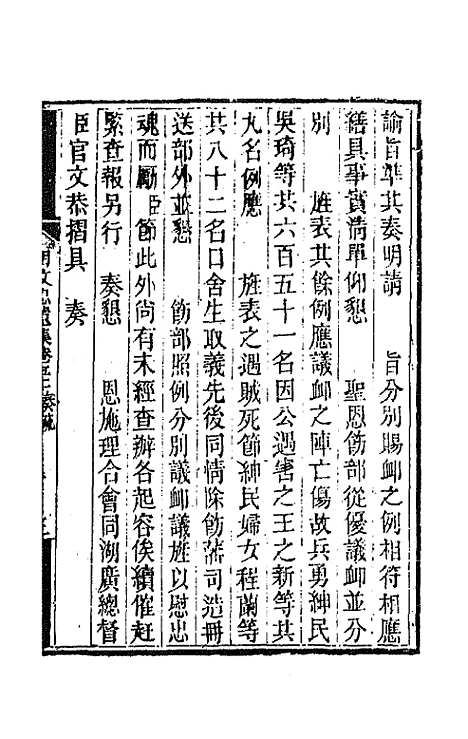 諭旨準其奏明請　旨分別賜卹之例相符相應
繕具事實清單仰懇　聖恩飭部從優議卹並分
別　旌表其餘例應議卹之陣亡傷故兵勇紳民
吳琦等共六百五十一名因公遇害之王之新等共
九名例應　旌表之遇賊死節紳民婦女程蘭等
共八十二名口舍生取義先後同情除飭藩司造冊
送部外並懇　飭部照例分別議卹議旌以慰忠
魂而勵臣節此外尚有未經查辦各起容俟續催赶
緊查報另行　奏懇　恩施理合會同湖廣總督
臣官文恭摺具　奏
胡文忠遺集卷 奏疏